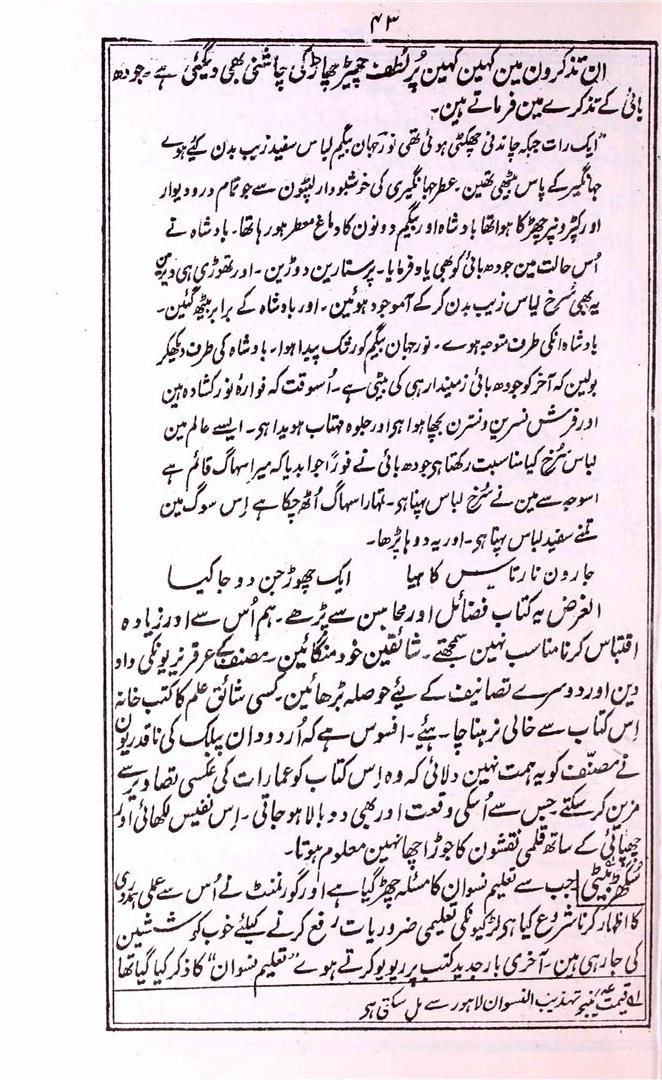 ۴۳
ان تذکرون مین کہین کہین پُرلطف چھیڑ چھاڑ کی چاشنی بھی دیگئی ہے۔ جودھ
بائی کے تذکرے مین فرماتے ہین۔
"ایک رات جبکہ چاندنی چھٹکی ہوئی تھی نورجہان بیگم لباس سفید زیب بدن کیے ہوے
جہانگیر کے پاس بیٹھی تھین۔ عطر جہانگیری کی خوشبودار لپٹون سے جو تمام در و دیوار
اور کپڑونپر چھڑکا ہوا تھا بادشاہ اور بیگم دونون کا دماغ معطر ہو رہا تھا۔ بادشاہ نے
اُس حالت مین جودھ بائی کو بھی یاد فرمایا۔ پرستارین دوڑین۔ اور تھوڑی ہی دیر مین
یہ بھی سُرخ لباس زیب بدن کر کے آموجود ہوئین۔ اور بادشاہ کے برابر بیٹھ گئین۔
بادشاہ انکی طرف متوجہ ہوے۔ نورجہان بیگم کو رشک پیدا ہوا۔ بادشاہ کی طرف دیکھکر
بولین کہ آخر کو جودھ بائی زمیندار ہی کی بیٹی ہے۔ اُسوقت کہ فوارۂ نور کشادہ ہین
اور فرش نسرین و نسترن بچھا ہوا ہو اور جلوہ مہتاب ہویدا ہو۔ ایسے عالم مین
لباس سُرخ کیا مناسبت رکھتا ہو جودھ بائی نے فوراً جوابدیا کہ میرا سہاگ قائم ہے
اسوجہ سے مین نے سُرخ لباس پہنا ہو۔ تمہارا سہاگ اُٹھ چکا ہے اِس سوگ مین
تمنے سفید لباس پہنا ہو۔ اور یہ دوہا پڑھا۔
جارون نار تاس کا ہیا ایک چھوڑ جن دوجا کیا
الغرض یہ کتاب فضائل اور محاسن سے پُر ہے۔ ہم اُس سے اور زیادہ
اقتباس کرنا مناسب نہین سمجھتے۔ شائقین خود منگائین۔ مصنف کے عرقریزیونکی داد
دین اور دوسرے تصانیف کے لیے حوصلہ بڑھائین۔ کسی شائق علم کا کتب خانہ
اِس کتاب سے خالی نرہنا چاہیئے۔ افسوس ہے کہ اُردودان پبلک کی ناقدریون
نے مصنّف کو یہ ہمت نہین دلائی کہ وہ اِس کتاب کو عمارات کی عکسی تصاویر سے
مزین کر سکتے جس سے اُسکی وقعت اور بھی دوبالا ہو جاتی۔ اِس نفیس لکھائی اور
چھپائی کے ساتھ قلمی نقشون کا جوڑ اچھا نہین معلوم ہوتا۔
سُگھڑ بیٹی جب سے تعلیم نسوان کا مسئلہ چھڑ گیا ہے اور گورنمنٹ نے اُس سے عملی ہمدردی
کا اظہار کرنا شروع کیا ہو لڑکیونکی تعلیمی ضروریات رفع کرنے کیلئے خوب کوششین
کی جا رہی ہین۔ آخری بار جدید کتب پر ریویو کرتے ہوے "تعلیم نسوان" کا ذکر کیا گیا تھا
قیمت منیجر تہذیب النسوان لاہور سے مل سکتی ہو